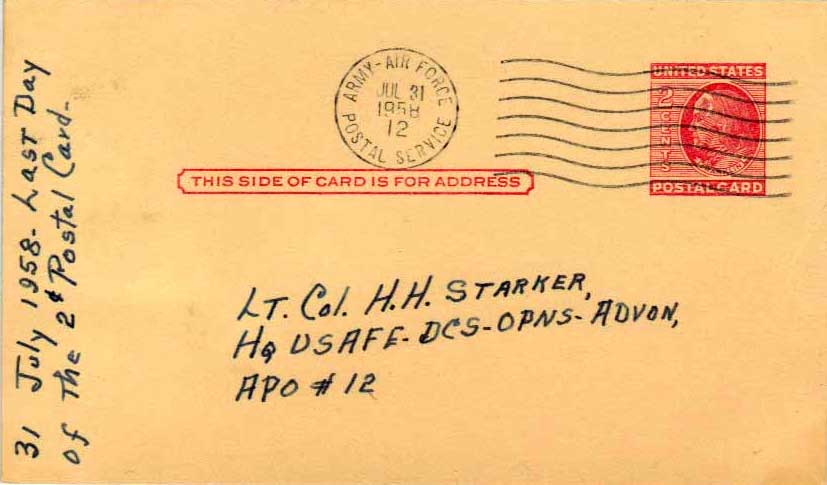 31 July 1958 - Last Day
of The 2¢ Postal Card -
ARMY-AIR FORCE
JUL 31
1958
12
POSTAL SERVICE
UNITED STATES
2 CENTS
POSTAL CARD
THIS SIDE OF CARD IS FOR ADDRESS
LT. Col. H.H. STARKER,
HQ USAFE-DCS-OPNS-ADVON,
APO # 12